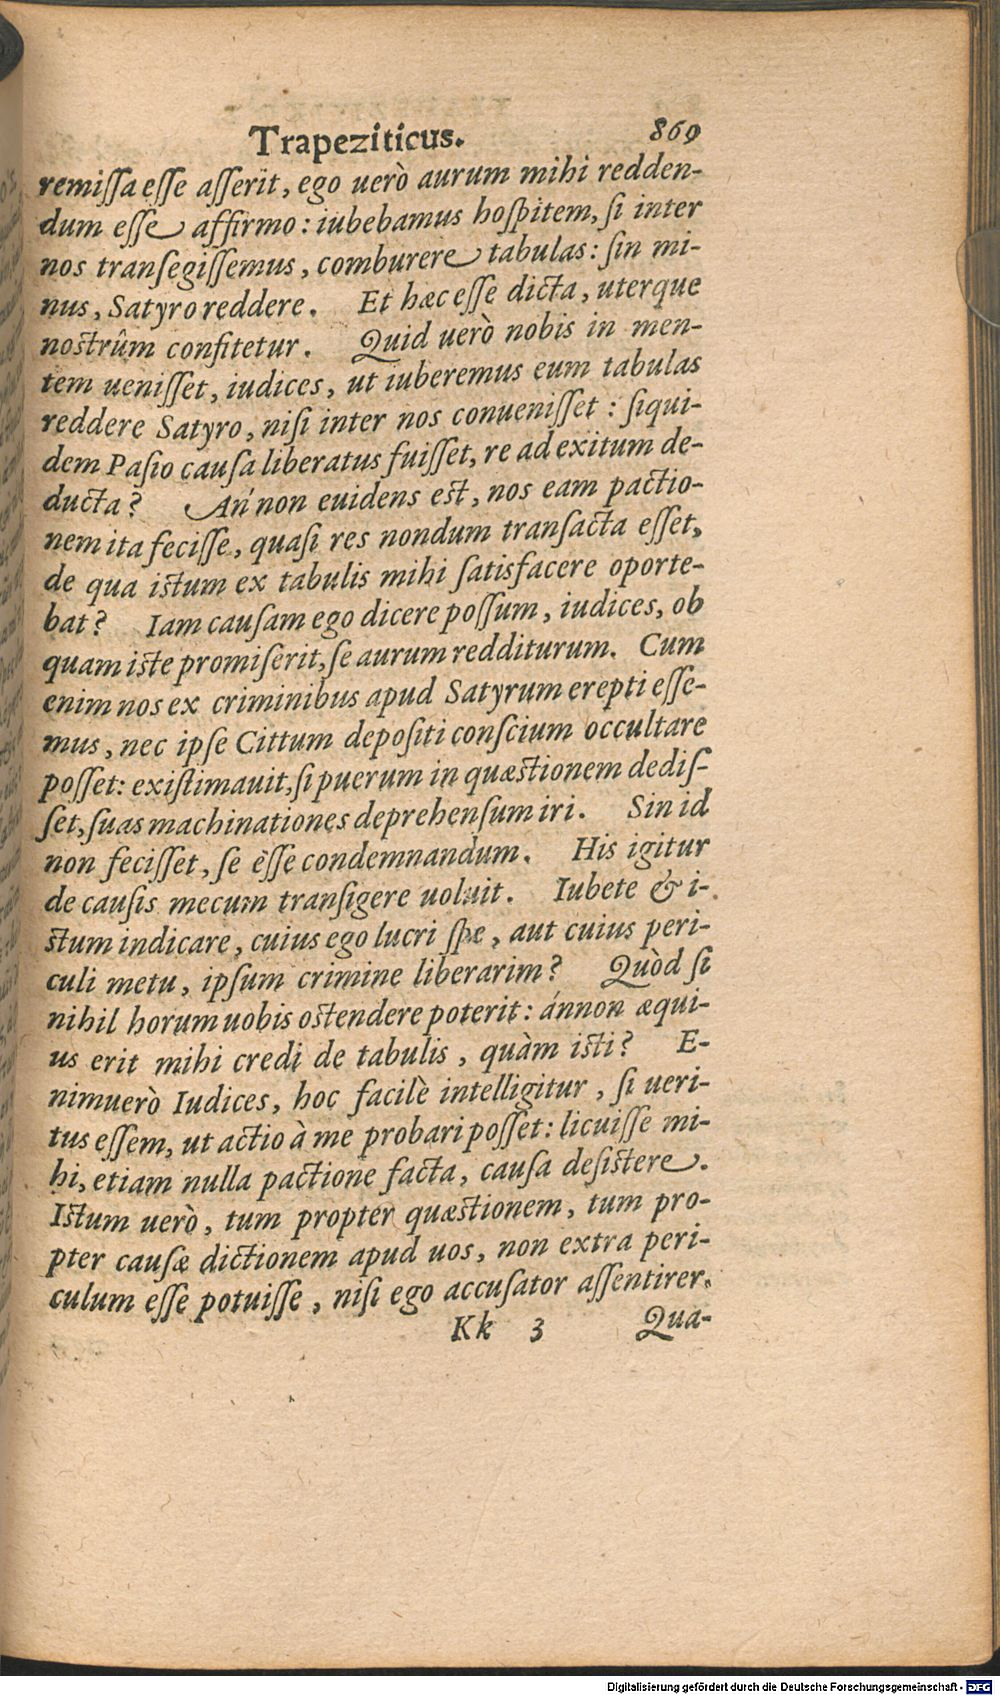 Trapeziticus. 869
remiſſa eſſe aſſerit, ego uerò aurum mihi redden-
dum eſſe affirmo: iubebamus hoſpitem, ſi inter
nos tranſegiſſemus, comburere tabulas: ſin mi-
nus, Satyro reddere. Et hæc eſſe dicta, uterque
noſtrûm confitetur. Quid uerò nobis in men-
tem ueniſſet, iudices, ut iuberemus eum tabulas
reddere Satyro, niſi inter nos conueniſſet: ſiqui-
dem Paſio cauſa liberatus fuiſſet, re ad exitum de-
ducta? An'non euidens eſt, nos eam pactio-
nem ita feciſſe, quaſi res nondum tranſacta eſſet,
de qua iſtum ex tabulis mihi ſatisfacere oporte-
bat? Iam cauſam ego dicere poſſum, iudices, ob
quam iſte promiſerit, ſe aurum redditurum. Cum
enim nos ex criminibus apud Satyrum erepti eſſe-
mus, nec ipſe Cittum depoſiti conſcium occultare
poſſet: exiſtimauit, ſi puerum in quæſtionem dediſ-
ſet, ſuas machinationes deprehenſum iri. Sin id
non feciſſet, ſe eſſe condemnandum. His igitur
de cauſis mecum tranſigere uoluit. Iubete & i-
ſtum indicare, cuius ego lucri ſpe, aut cuius peri-
culi metu, ipſum crimine liberarim? Quòd ſi
nihil horum uobis oſtendere poterit: ánnon æqui-
us erit mihi credi de tabulis, quàm iſti? E-
nimuerò Iudices, hoc facilè intelligitur, ſi ueri-
tus eſſem, ut actio à me probari poſſet: licuiſſe mi-
hi, etiam nulla pactione facta, cauſa deſiſtere.
Iſtum uerò, tum propter quæſtionem, tum pro-
pter cauſæ dictionem apud uos, non extra peri-
culum eſſe potuiſſe, niſi ego accuſator aſſentirer.
Kk 3 Qua-
Digitalisierung gefördert durch die Deutsche Forschungsgemeinschaft - DFG